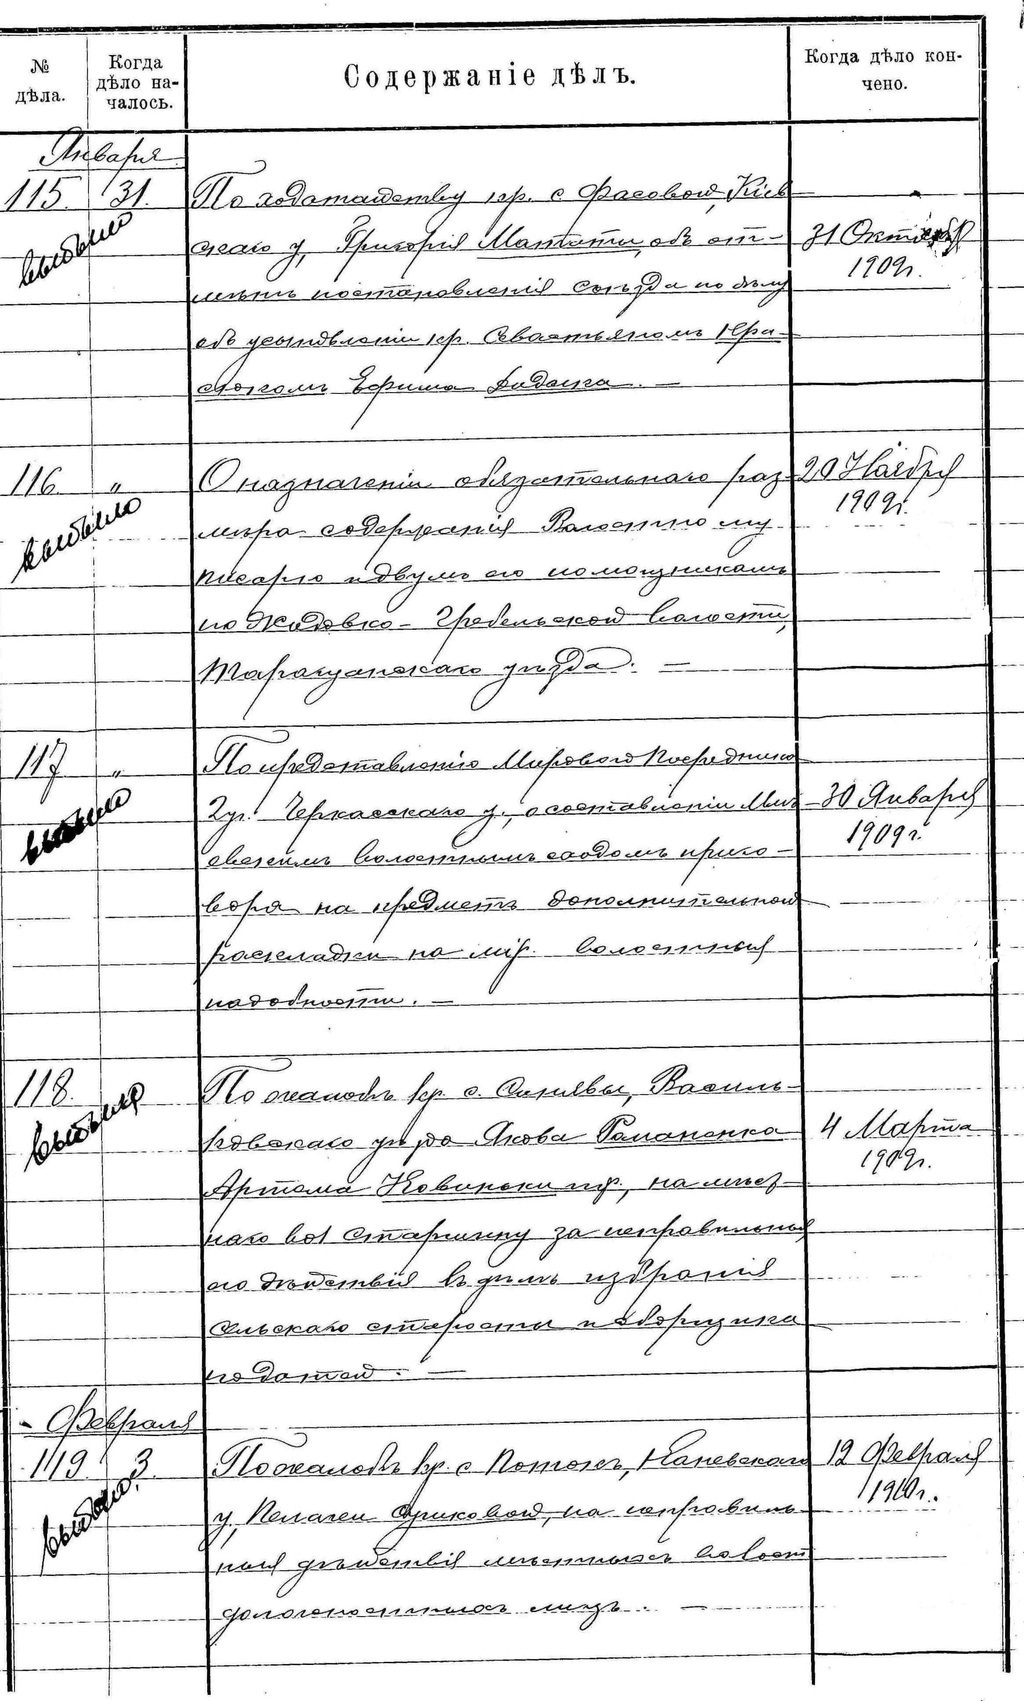 № дѣла.
Когда дѣло началось.
Содержаніе дѣлъ.
Когда дѣло кончено.
Января
115. 31. По ходатайству кр. с. Фасовой, Кіев
выбыло
скаго у, Григорія об от-
31 Октября 1909г.
мѣнѣ постановленія съѣзда по дѣлу
объ усыновленіи кр. Севастьяномъ
Ефима Диденка. —
116. " О назначеніи обязательнаго раз-
выбыло
20 Ноября 1909г.
мѣра содержанія Волостному
писарю и двумъ его помощникамъ
по Жидовко-Гребельской волости,
Таращанскаго уѣзда. —
117 " По представленію Мирового Посредника
выбыло
2 уч. Черкасскаго у, о составленіи
30 Января 1909г.
волостнымъ сходомъ приго-
вора на предметъ дополнительной
раскладки на мір. волостныя
надобности. —
118. По жалобѣ кр. с. Синявы, Василь-
выбыло
ковскаго уѣзда Якова Романенка
4 Марта 1909г.
Артема и др., на мѣст-
наго вол старшину за неправильныя
его дѣйствія въ дѣлѣ избранія
сельскаго старосты и сборщика
податей. —
Февраля
119. 3. По жалобѣ кр. с. Потокъ, Каневскаго
выбыло
12 Февраля 1910г.
у, Пелагеи на неправиль-
ныя дѣйствія мѣстныхъ волост
должностныхъ лицъ. —